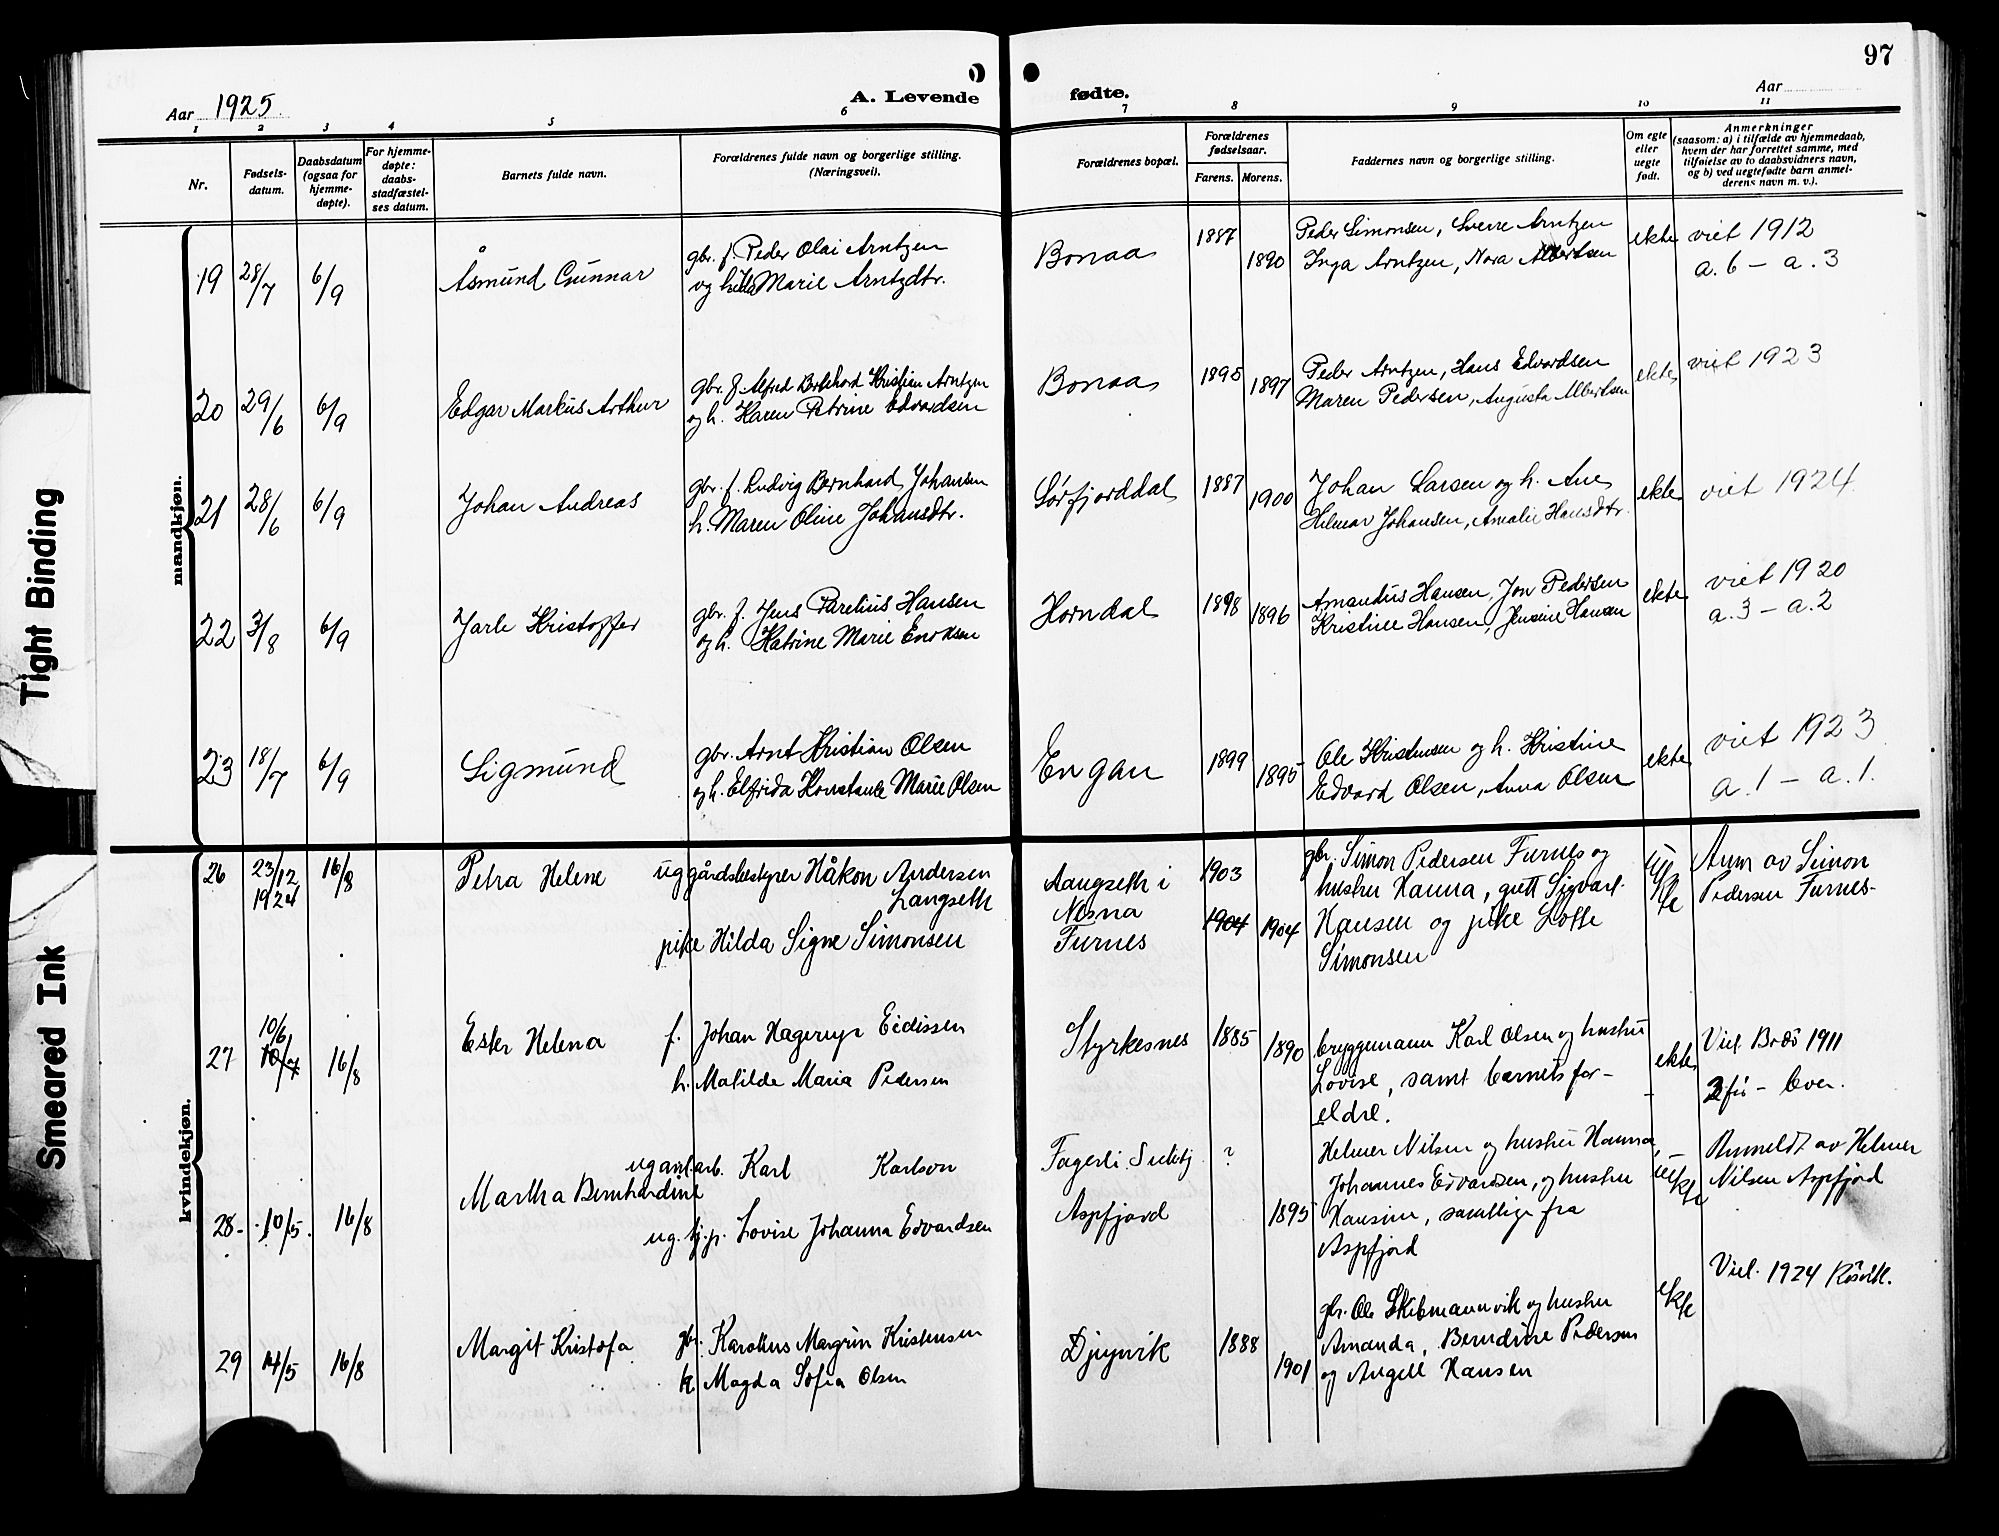 97
Aar 1925.
A. Levende
fødte.
Aar
1 2 3 4 5 6 7 8 9 10 11
Nr.
Fødsels-
datum.
Daabsdatum
(ogsaa for
hjemme-
døpte).
For hjemme-
døpte:
daabs-
stadfæstel-
ses datum.
Barnets fulde navn.
Forældrenes fulde navn og borgerlige stilling.
(Næringsvei).
Forældrenes bopæl.
Forældrenes
fødselsaar.
Farens. Morens.
Faddernes navn og borgerlige stilling.
Om egte
eller
uegte
født.
Anmerkninger
(saasom: a) i tilfælde av hjemmedaab,
hvem der har forrettet samme, med
tilføielse av to daabsvidners navn,
og b) ved uegtefødte barn anmel-
derens navn m. v.).
mandkjøn.
19 28/7 6/9 Åsmund Gunnar
gbr. f. Peder Olai Arntzen
og h. Marie Arntzdtr.
Bonaa 1887 1890
Peder Simonsen, Sverre Arntzen
Inga Arntzen, Nora Albertsen
ekte
viet 1912
a. 6 – a. 3
20 29/6 6/9 Edgar Markus Arthur
gbr. f. Alfred Berthord Kristian Arntzen
og h. Karen Petrine Edvardsen
Bonaa 1895 1897
Peder Arntzen, Hans Edvardsen
Maren Pedersen, Augusta Albertsen
ekte
viet 1923
21 28/6 6/9 Johan Andreas
gbr. f. Ludvig Bernhard Johansen
h. Maren Oline Johansdtr.
Sørfjorddal 1887 1900
Johan Larsen og h. Ane
Helmar Johansen, Amalie Hansdtr.
ekte
viet 1924
22 3/8 6/9 Jarle Kristoffer
gbr. f. Jens Parelius Hansen
og h. Katrine Marie Enoksen
Horndal 1898 1896
Amandus Hansen, Jon Pedersen
Kristine Hansen, Jensine Hansen
ekte
viet 1920
a. 3 – a. 2
23 18/7 6/9 Sigmund
gbr. Arnt Kristian Olsen
og h. Elfrida Konstanse Marie Olsen
Engan 1899 1895
Ole Kristensen og h. Kristine
Edvard Olsen, Anna Olsen
ekte
viet 1923
a. 1 – a. 1.
kvindekjøn.
26 23/12 1924 16/8 Petra Helene
ug gårdsbestyrer Håkon Andersen
Langseth
pike Hilda Signe Simonsen
Langseth i
Nesna
Furnes
1903 1904 1904
gbr. Simon Pedersen Furnes og
hustru Hanna, gutt Sigvart
Hansen og pike Lotte
Simonsen
Anm av Simon
Pedersen Furnes-
27 10/6 10/7 16/8 Ester Helena
f. Johan Hagerup Eidissen
h. Matilde Maria Pedersen
Styrkesnes 1885 1890
bryggemann Karl Olsen og hustru
Lovise, samt barnets for-
eldre.
ekte
Viet Bodø 1911
28- 10/5. 16/8 Martha Bernhardine
ug anl.arb. Karl Karlson
ug. tj.p. Lovise Johanna Edvardsen
Fagerli
Aspfjord
? 1895
Helmer Nilsen og hustru Hanna,
Johannes Edvardsen, og hustru
Hansine, samtlige fra
Aspfjord
uekte
Anmeldt av Helmer
Nilsen Aspfjord
29 14/5 16/8 Margit Kristofa
gbr. Karolius Margrin Kristensen
h. Magda Sofia Olsen
Djupvik 1888 1901
gbr. Ole Skibmannvik og hustru
Amanda, Berndine Pedersen
og Angell Hansen
ekte
Viet 1924 Røsvik.
Tight Binding
Smeared Ink